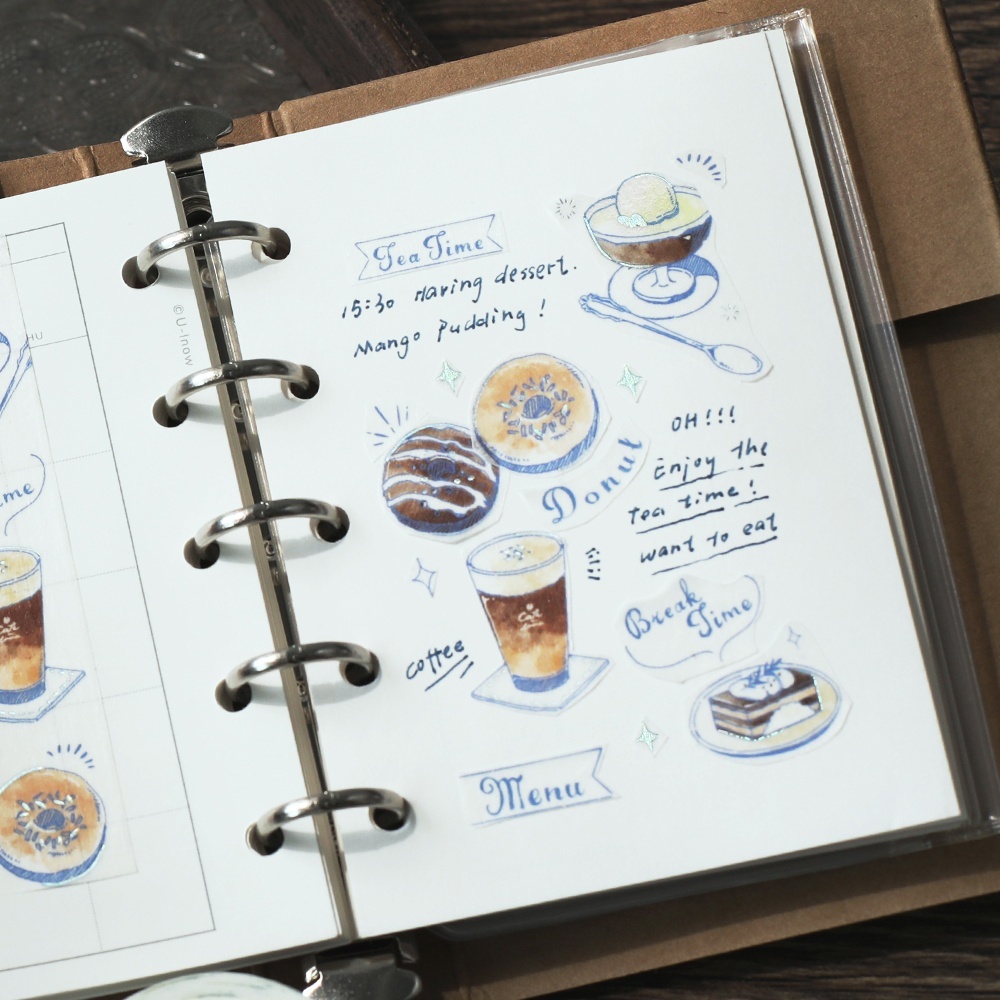 Tea Time
15:30 Having dessert.
Mango pudding!
OH!!!
Enjoy the
Tea time!
want to eat
Donut
Break
Time
coffee
Menu
©U-Inow
me